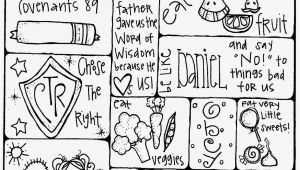 Covenants 89
Father
gave us the
Word of
Wisdom
because He
us!
Eat
FRUIT
be like
DANIEL
and say
"No!" to
things bad
for us
Chose
The
Right
CTR
eat
veggies
Obey
Eat very
little
sweets!